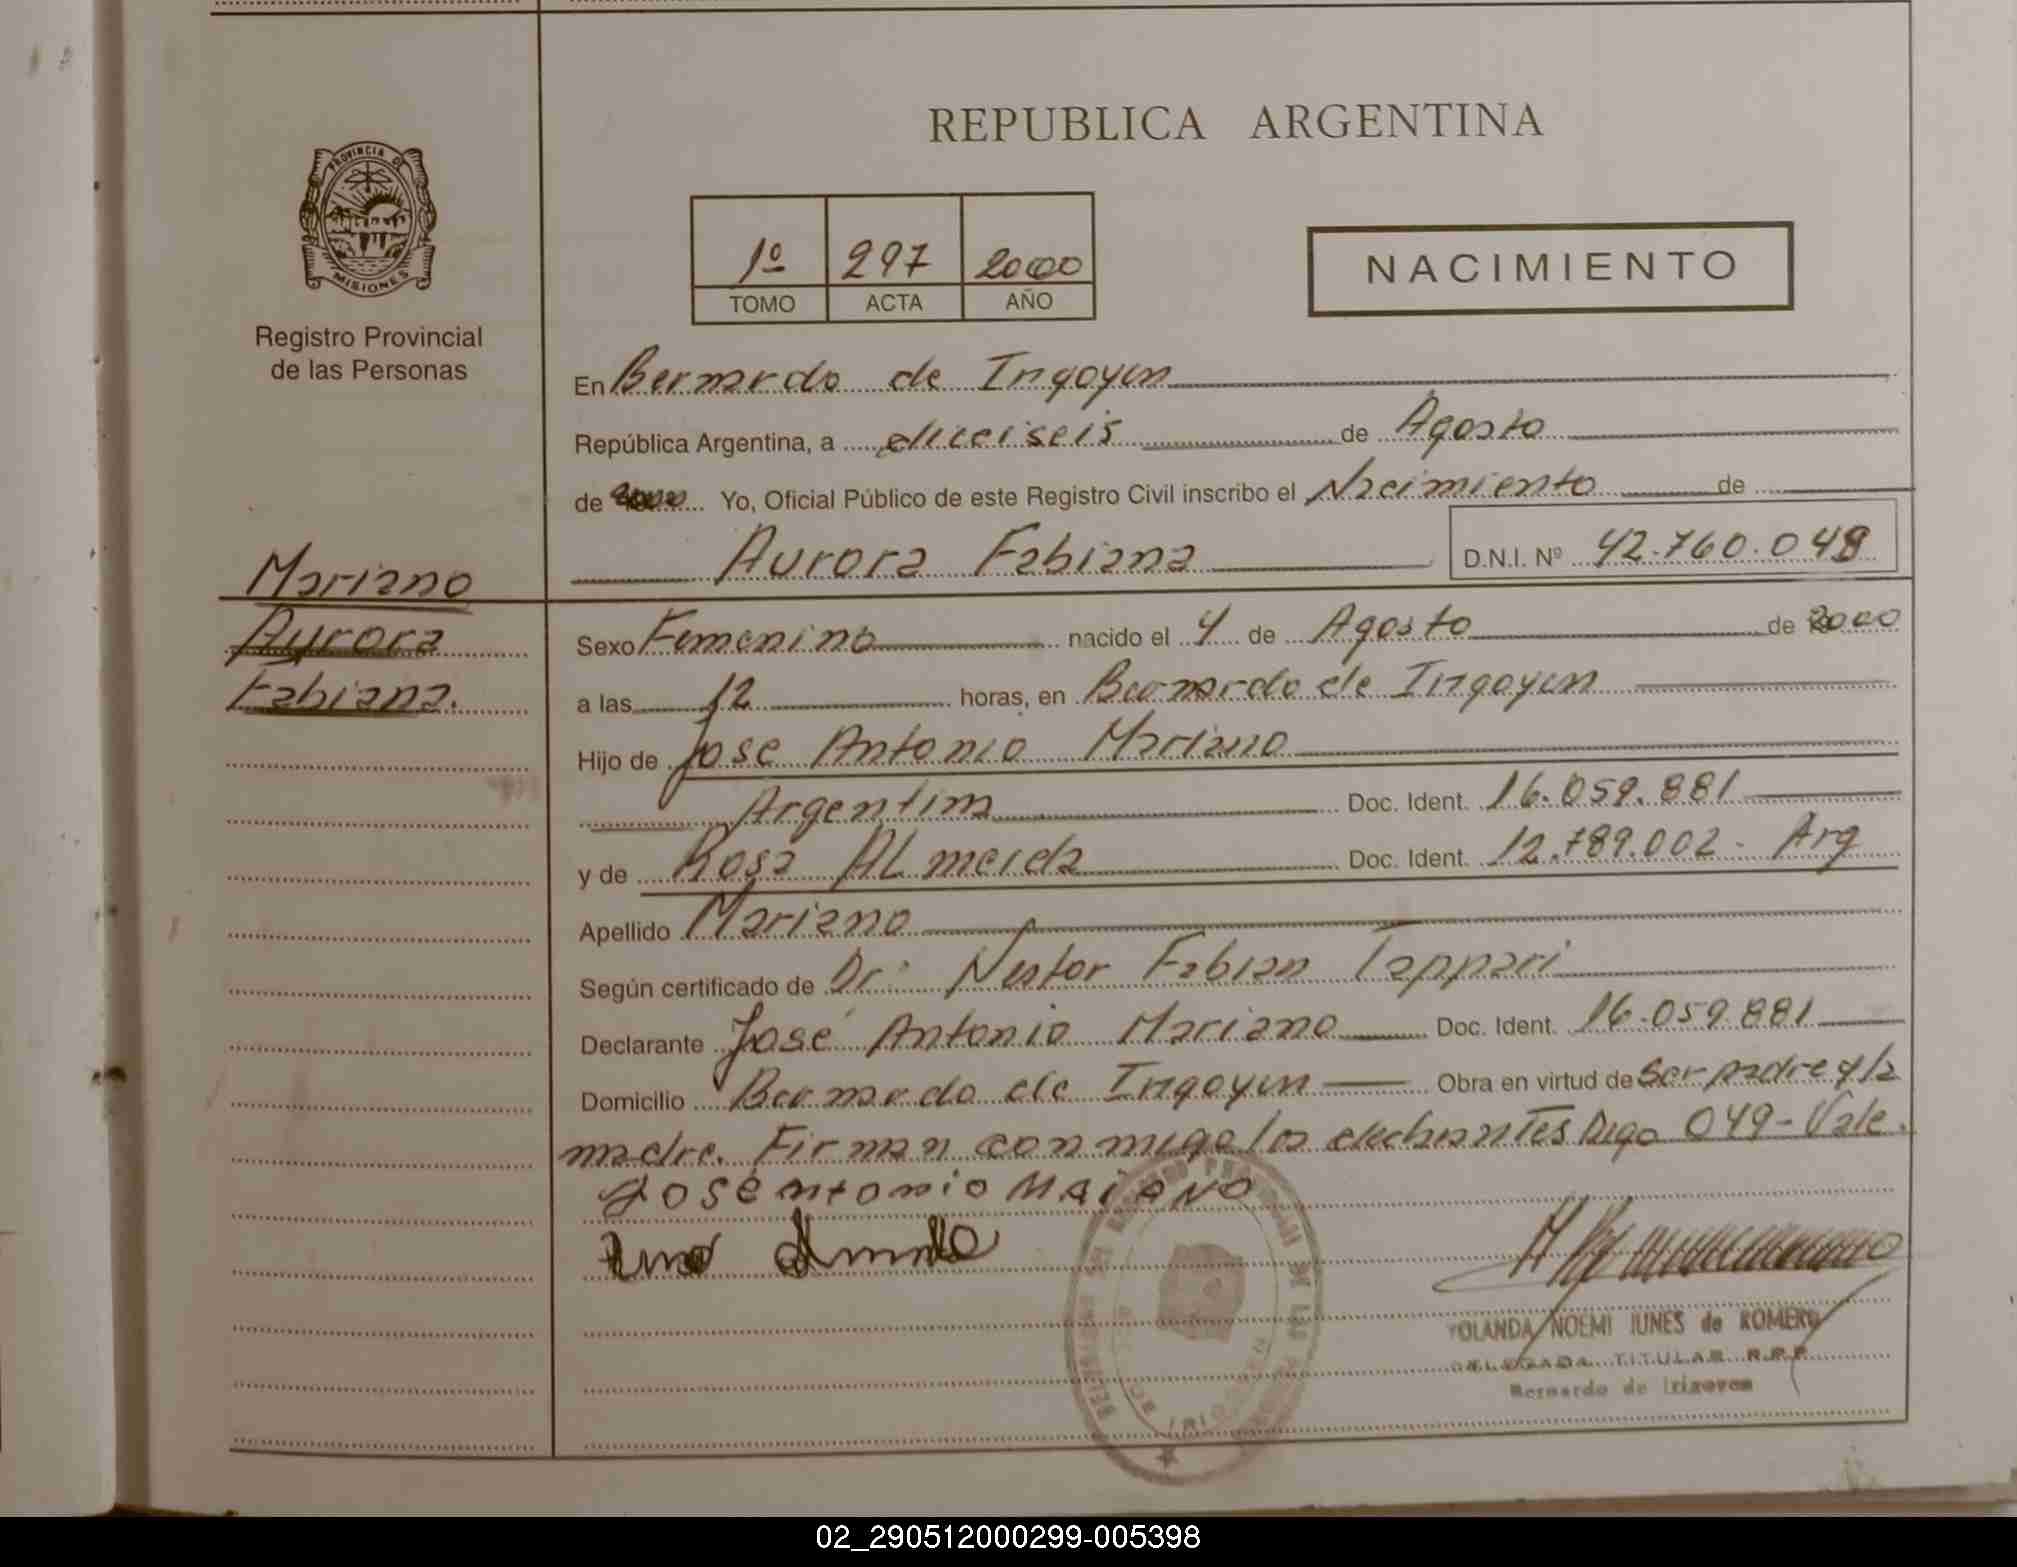 REPUBLICA ARGENTINA
PROVINCIA DE
MISIONES
Registro Provincial
de las Personas
1º 297 2000
TOMO ACTA AÑO
NACIMIENTO
En Bernardo de Irigoyen
República Argentina, a dieciseis de Agosto
de 2000 Yo, Oficial Público de este Registro Civil inscribo el Nacimiento de
Aurora Fabiana D.N.I. Nº 42.760.049
Mariano
Aurora
Fabiana.
Sexo Femenino nacido el 4 de Agosto de 2000
a las 12 horas, en Bernardo de Irigoyen
Hijo de José Antonio Mariano
Argentina Doc. Ident. 16.059.881
y de Rosa ALmeida Doc. Ident. 12.789.002 - Arg
Apellido Mariano
Según certificado de Dr: Nestor Fabian Tappari
Declarante José Antonio Mariano Doc. Ident. 16.059.881
Domicilio Bernardo de Irigoyen Obra en virtud de Ser padre y la
madre. Firman conmigo los declarantes Digo 049 - Vale.
José ntonio Maiano
YOLANDA NOEMI IUNES de ROMERO
DELEGADA TITULAR R.P.P.
Bernardo de Irigoyen
02_290512000299-005398